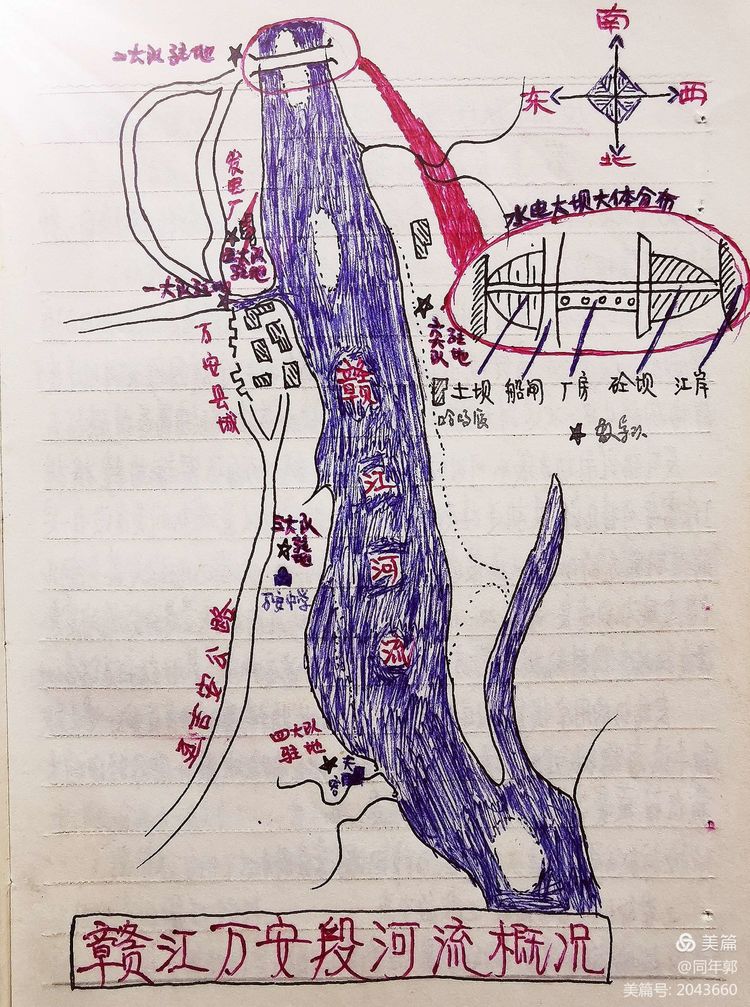 南
东
西
北
二大队驻地
发电厂
五大队
驻地
一大队驻地
万安县城
水电大坝大体分布
土坝
船闸
厂房
砼坝
江岸
六大队
驻地
教导队
赣
江
河
流
三大队
驻地
万安中学
通吉安公路
四大队
驻地
赣江万安段河流概况
美篇
@同年郭
美篇号: 2043660